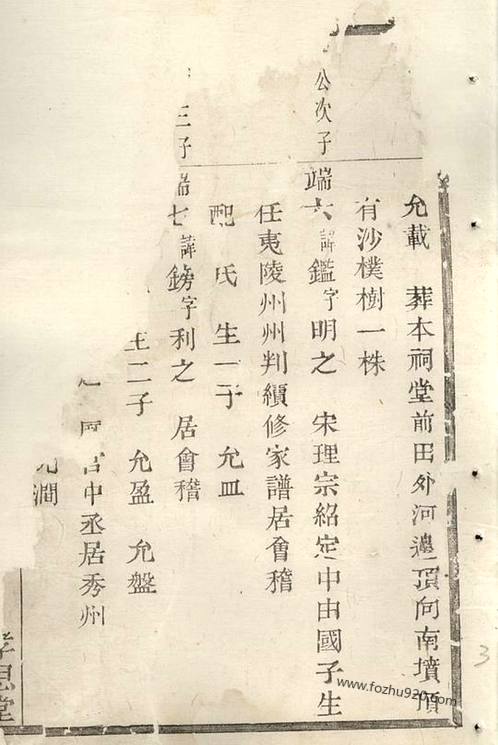 允載　葬本祠堂前田外河邊頂向南墳頂
有沙樸樹一株
公次子
端六諱鑑字明之　宋理宗紹定中由國子生
任夷陵州州判續修家譜居會稽
配　氏　生一子　允皿
三子
端七諱鎊字利之　居會稽
生二子　允盈　允盤
官中丞居秀州
允澗
孝思堂
www.fozhu920.com
3